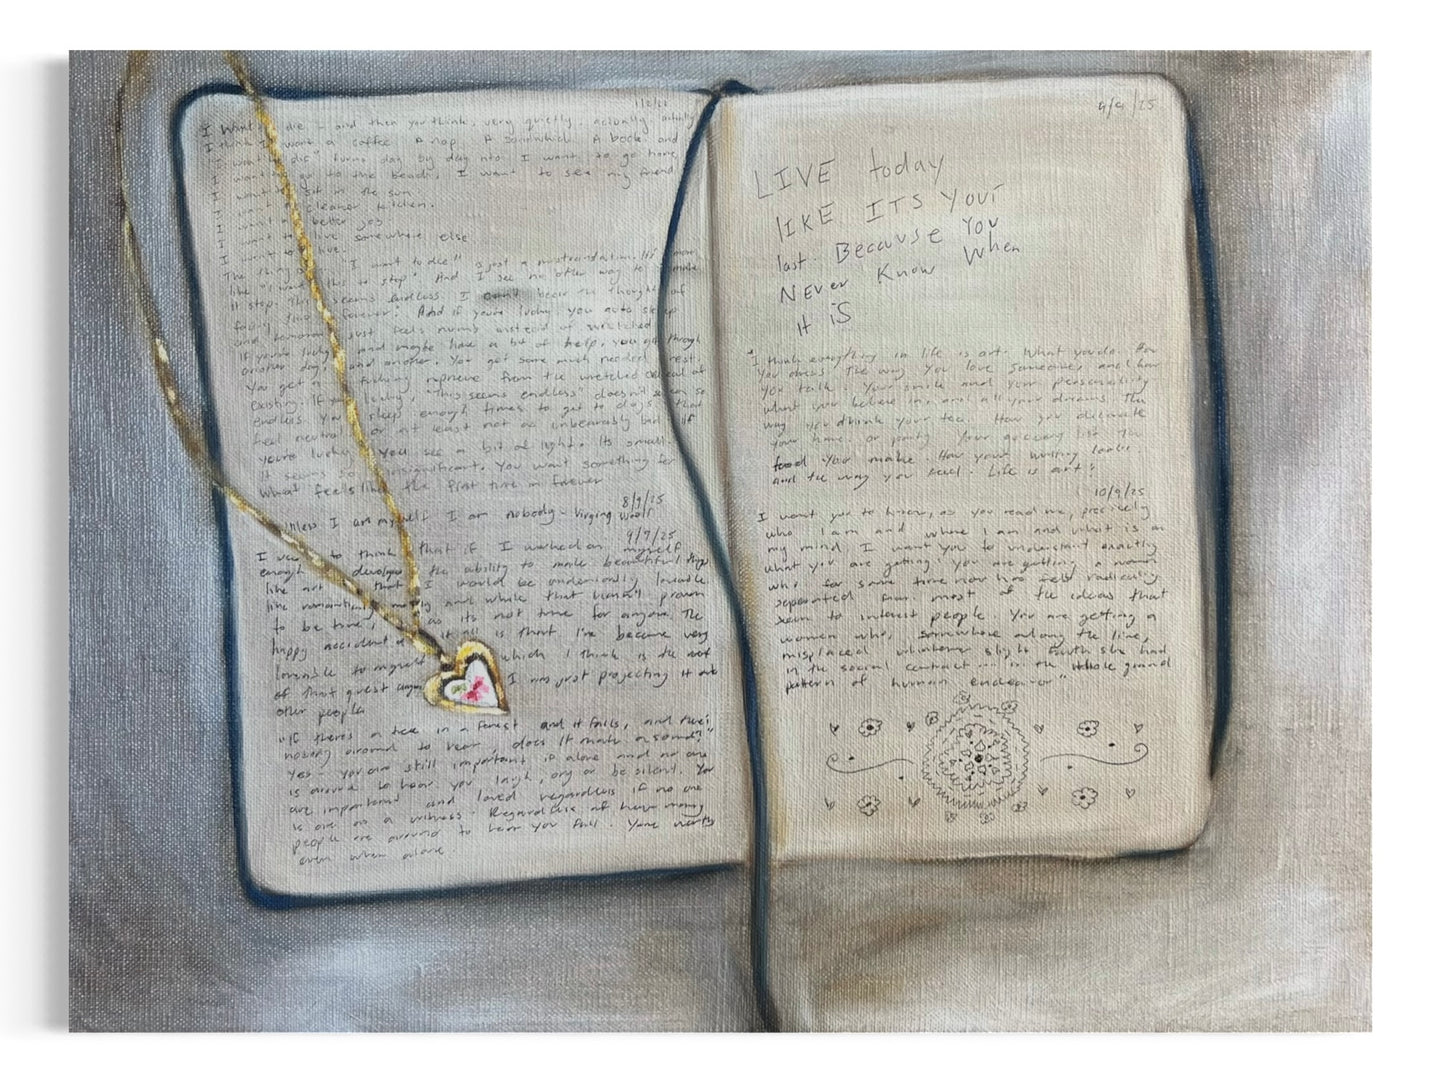 I want die - and then you think, very quietly, actually actually
I think I want a coffee. A nap. A sandwhich. A book and
"I want to die" turns day by day into I want to go home,
I want to go to the beach, I want to see my friend
I want to sit in the sun.
I want a cleaner kitchen.
I want a better job
I want to live somewhere else
I want to live.
The thing is "I want to die" is just a mistranslation. It's more
like "I want this to stop" And I see no other way to make
it stop. This seems endless. I can't bear the thought of
this forever. And if you're lucky you go to sleep
and tomorrow just feels numb instead of wretched
If you're lucky and maybe have a bit of help, you get through
another day, and another. You get some much needed rest.
You get a fucking reprieve from the wretched of
existing. If you're lucky, "this seems endless" doesn't seem so
endless. You sleep enough times to get to days that
feel neutral or at least not as unbearably bad. If
you're lucky, you see a bit of light. Its small.
it seems so insignificant. You want something for
what feels like the first time in forever
8/9/25
Unless I am myself I am nobody - Virging Woolf
9/7/25
I used to think that if I worked on myself
enough developed the ability to make beautiful things
like art that I would be undeniably loveable
like romantically and while that hasn't proven
to be true, as its not true for anyone. The
happy accident of it all is that I've become very
loveable to myself which I think is the
of that quest I am just projecting it out
other people
"If theres a tree in a forest and it falls, and theri
nobody around to hear, does it make a sound?"
Yes - you are still important if alone and no one
is around to hear you laugh, cry or be silent. You
are important and loved regardless if no one
is as a witness. Regardless of how many
people are around to hear you fall. Your worth
even when alone
9/9/25
LIVE today
LIKE ITS YOUr
last. Because You
NEVer Know When
it iS
"I think everything in life is art. What you do. How
You dress. The way You love someone, and how
You talk. Your smile and your personality
what you believe in, and all your dreams. The
way you drink your tea. How you decorate
your home. or party. Your grocery list. The
food you make. How your writing looks.
and the way you feel. Life is art"
10/9/25
I want you to know, as you read me, precisely
who I am and where I am and what is on
my mind. I want you to understand exactly
what you are getting: you are getting a woman
who for some time now has felt radically
separated from most of the ideas that
seem to interest people. You are getting a
women who, somewhere along the line,
misplaced whatever slight faith she had
in the social contract ... in the whole grand
pattern of human endeavor"